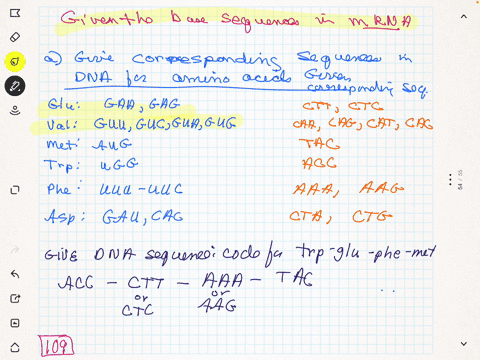 Given the base sequences in mRNA
a) Give corresponding sequences in
DNA for amino acids Given
corresponding seq.
Glu: GAA, GAG CTT, CTC
Val: GUU, GUC, GUA, GUG CAA, CAG, CAT, CAC
Met: AUG TAC
Trp: UGG ACC
Phe: UUU - UUC AAA, AAG
Asp: GAU, CAG CTA, CTG
GIVE DNA sequence: code for trp-glu-phe-met
ACC - CTT - AAA - TAC
or or
CTC AAG
109
64 / 55